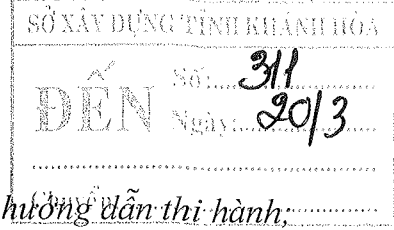 SỞ XÂY DỰNG TỈNH KHÁNH HÒA
ĐẾN
Số: 311
Ngày: 20/3
Chuyển:
hướng dẫn thi hành;